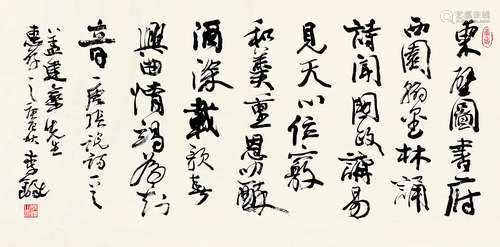 東壁圖書府
西園翰墨林誦
詩聞國政講易
見天心位竊
和羹重恩叨醉
酒深載歌春
興曲情竭為知
音 唐張說詩一首
建華先生
惠存 庚寅秋 李鐸